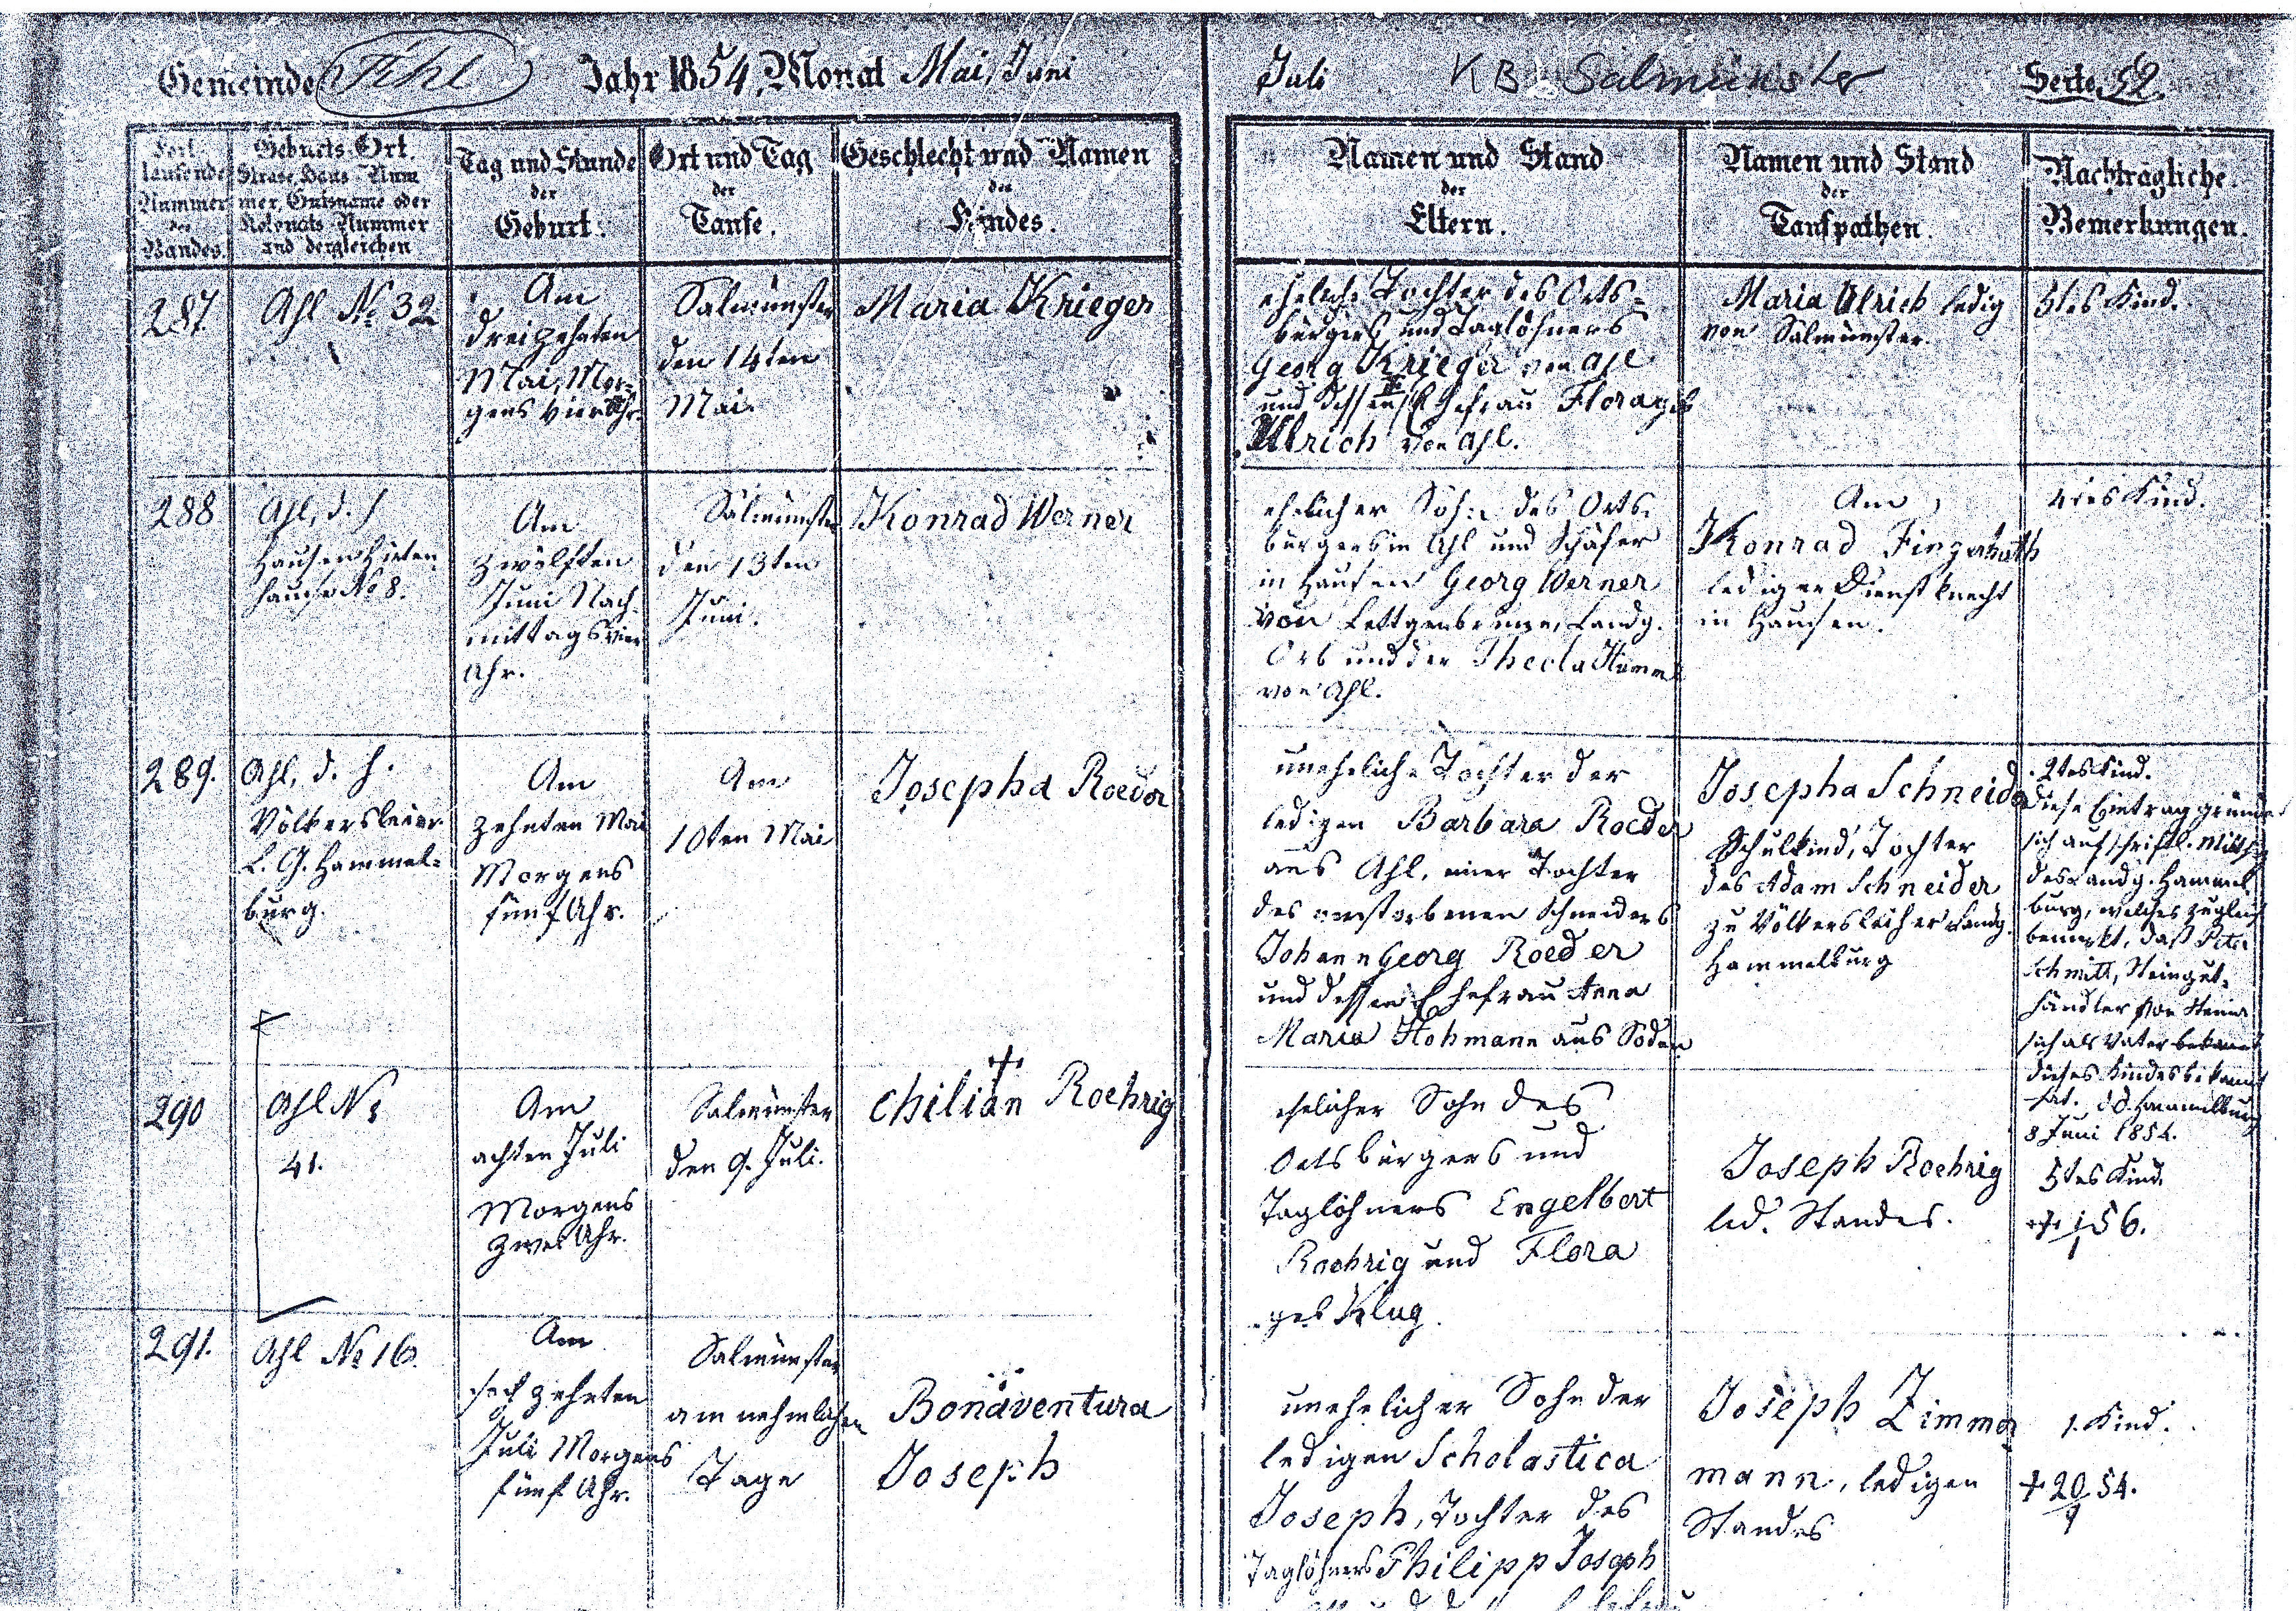 Gemeinde Ahl Jahr 1854, Monat Mai, Juni Juli KB Salmünster Seite 52.
Fort-
laufende
Nummer
des
Bandes.
Geburts-Ort.
Strase, Haus-Num
mer, Gutsname oder
Kolonats-Nummer
und dergleichen
Tag und Stunde
der
Geburt.
Ort und Tag
der
Taufe.
Geschlecht und Namen
des
Kindes.
Namen und Stand
der
Eltern.
Namen und Stand
der
Taufpathen.
Nachträgliche
Bemerkungen.
287.
Ahl No 32
Am
dreizehnten
Mai, Mor-
gens vier Uhr.
Salmünster
den 14ten
Mai.
Maria Krieger
eheliche Tochter des Orts-
bürgers und Taglöhners
Georg Krieger von Ahl
und dessen Ehefrau Flora geb
Ulrich von Ahl.
Maria Ulrich ledig
von Salmünster.
5tes Kind.
288
Ahl, d. h.
Hausen Hirten-
hause No 8.
Am
zwölften
Juni Nach-
mittags vier
Uhr.
Salmünster
den 13ten
Juni.
Konrad Werner
ehelicher Sohn des Orts-
bürgers in Ahl und Schäfer
in Hausen Georg Werner
von Lettgenbrunn, Landg.
Orb und der Thecla
von Ahl.
Am
Konrad Fingerhuth
lediger Dienstknecht
in Hausen.
4tes Kind.
289.
Ahl, d. h.
Völkersleier
L. G. Hammel-
burg.
Am
zehnten Mai
Morgens
fünf Uhr.
Am
10ten Mai
Josepha Roeder
uneheliche Tochter der
ledigen Barbara Roeder
aus Ahl, einer Tochter
des verstorbenen Schneiders
Johann Georg Roeder
und dessen Ehefrau Anna
Maria Hohmann aus Soden
Josepha Schneider
Schulkind, Tochter
des Adam Schneider
zu Völkersleier Landg.
Hammelburg
2tes Kind.
Diese Eintrag gründet
sich auf schriftl. Mitth.
des Landg. Hammel
burg, welches zugleich
bemerkt, daß Peter
Schmitt, Steingut-
händler von
sich als Vater bekannt
dieses Kindes bekannt
hat. dd. Hammelburg
8 Juni 1854.
290
Ahl No
41.
Am
achten Juli
Morgens
zwei Uhr.
Salmünster
den 9. Juli.
†
Chilian Roehrig
ehelicher Sohn des
Ortsbürgers und
Taglöhners Engelbert
Roehrig und Flora
geb Klug.
Joseph Roehrig
led. Standes.
5tes Kind.
291.
Ahl No 16.
Am
sechzehnten
Juli Morgens
fünf Uhr.
Salmünster
am nehmlichen
Tage
Bonaventura
Joseph
unehelicher Sohn der
ledigen Scholastica
Joseph, Tochter des
Taglöhners Philipp Joseph
Joseph Zimmer
mann, ledigen
Standes
1. Kind.
† 20/9 54.